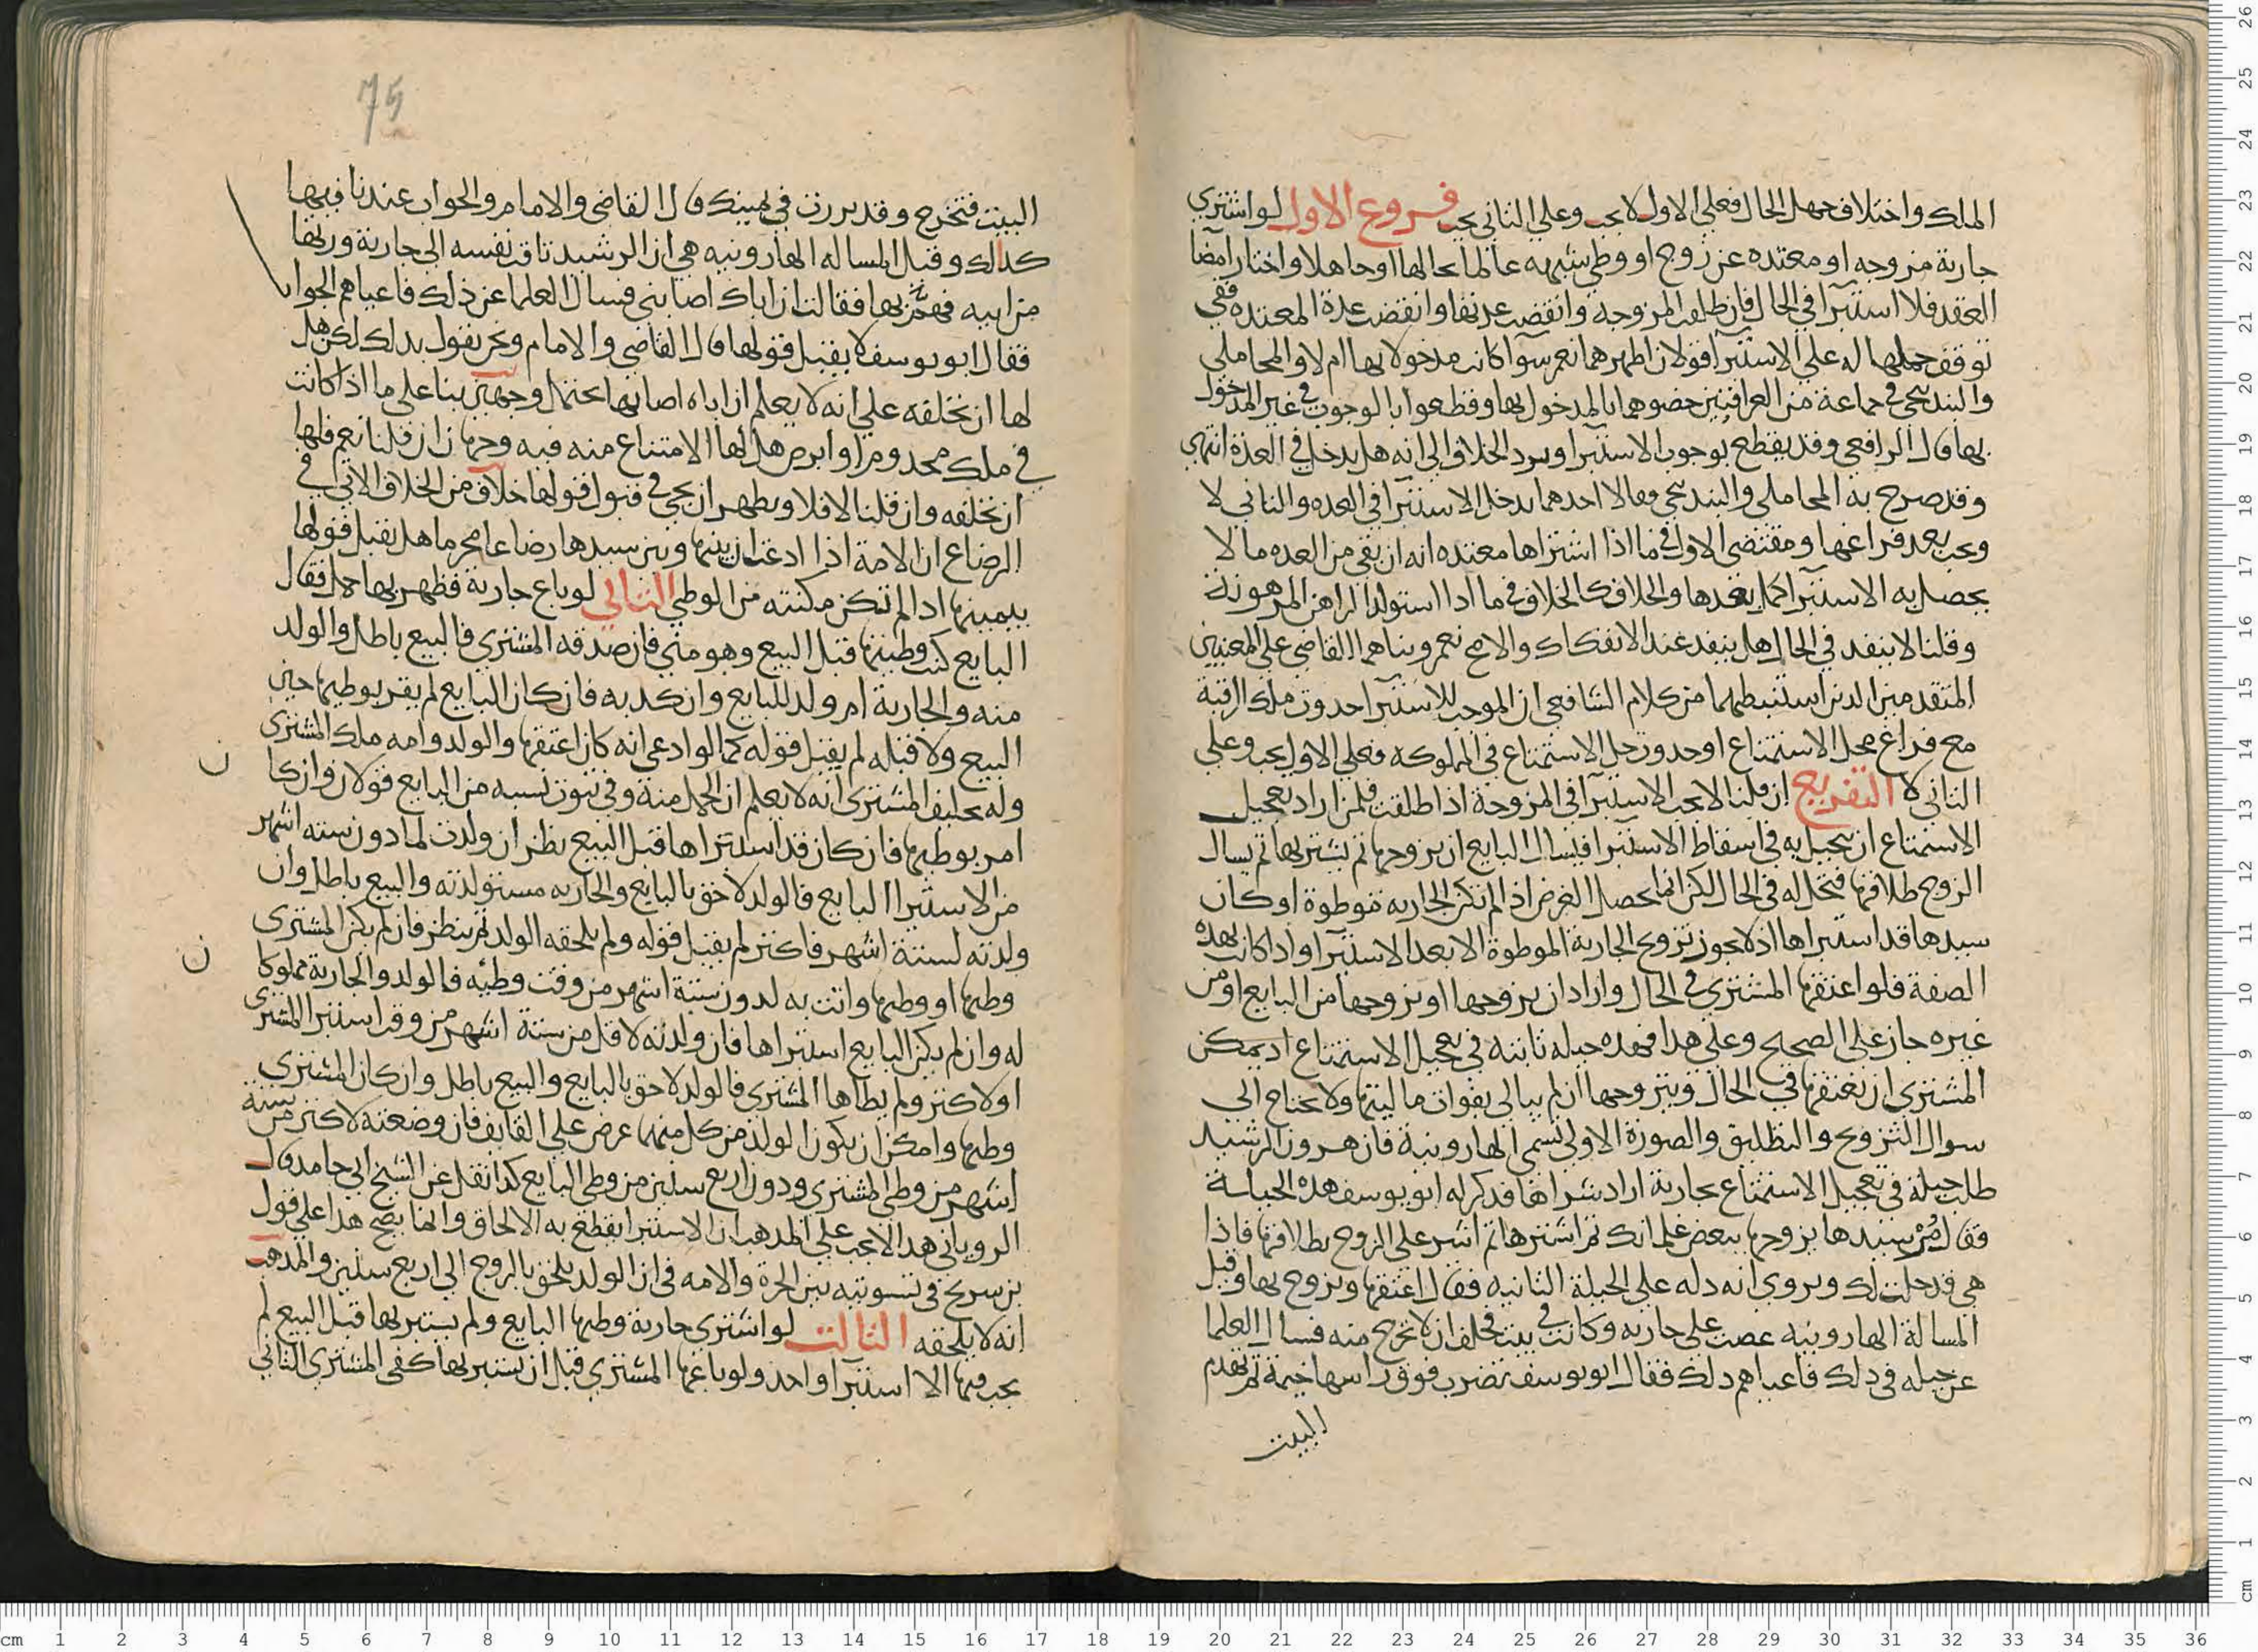 الملك واختلاف جهل الحال فعلى الاول لا يجب وعلى الثاني يجب فروع الاول لو اشترى
جارية مزوجه او معتده عن زوج او وطي شبهه عالما بحالها او جاهلا واختار امضا
العقد فلا استبرا في الحال فان طلقت المزوجه وانقضت عدتها او انقضت عدة المعتده ففي
توقف حملها له على الاستبرا قولان اظهرهما نعم سوآ كانت مدخولا بها ام لا والمحاملي
والبندنيجي في جماعة من العراقيين خصوهما بالمدخول بها وقطعوا بالوجوب في غير المدخول
بها قال الرافعي وقد يقطع بوجوب الاستبرا ويرد الخلاف الى انه هل يدخل في العدة انتهى
وقد صرح به المحاملي والبندنيجي وقالا احدهما يدخل الاستبرا في العده والثاني لا
ويجب بعد فراغها ومقتضى الاول في ما اذا اشتراها معتده انه ان بقي من العده ما لا
يحصل به الاستبرا اكمل بعدها والخلاف كالخلاف في ما اذا استولد الراهن المرهونة
وقلنا لا ينفد في الحال هل ينفد عند الانفكاك والاصح نعم وبناهما القاضي على المعنيين
المتقدمين الذين استنبطهما من كلام الشافعي ان الموجب للاستبرا حدوث ملك الرقبة
مع فراغ محل الاستمتاع او حدوث حل الاستمتاع في المملوكه فعلى الاول يجب وعلى
الثاني لا التفريع ان قلنا لا يجب الاستبرا في المزوجة اذا طلقت فلمن اراد تعجيل
الاستمتاع ان يتحيل به في اسقاط الاستبرا فيسال البايع ان يزوجها ثم يشتريها ثم يسال
الزوج طلاقها فتحل له في الحال لكن انما يحصل الغرض اذا لم تكن الجاريه موطوة او كان
سيدها قد استبراها اذ لا يجوز تزويج الجارية الموطوة الا بعد الاستبرا واذا كانت بهذه
الصفة فلو اعتقها المشتري في الحال واراد ان يزوجها او يتزوجها من البايع او من
غيره جاز على الصحيح وعلى هذا فهذه حيله ثانية في تعجيل الاستمتاع اذ يمكن
المشتري ان يعتقها في الحال ويتزوجها ان لم يبالي بفوات ماليتها ولا يحتاج الى
سوال التزويج والتطليق والصورة الاولى تسمى الهارونية فان هرون الرشيد
طلب حيلة في تعجيل الاستمتاع بجارية اراد شراها فذكر له ابو يوسف هذه الحيلة
فقال مُرْ سيدها يزوجها ببعض غلمانك ثم اشترها ثم اشر على الزوج بطلاقها فاذا
هي قد حلت لك ويروى انه دله على الحيلة الثانية فقال اعتقها وتزوج بها وقيل
المسالة الهارونيه عصت على جاريه وكانت في بيت فحلف ان لا تخرج منه فسال العلما
عن حيله في ذلك فاعياهم ذلك فقال ابو يوسف تضرب فوق راسها خيمة ثم يهدم
البيت
75
البيت فتخرج وقد بررت في يمينك قال القاضي والامام والجواب عندنا فيها
كذلك وقيل المساله الهارونيه هي ان الرشيد تاقت نفسه الى جارية ورثها
من ابيه فهمّ بها فقالت ان اباك اصابني فسال العلما عن ذلك فاعياهم الجواب
فقال ابو يوسف لا يقبل قولها قال القاضي والامام ونحن نقول بذلك لكن هل
لها ان تحلفه على انه لا يعلم ان اباه اصابها يحتمل وجهين بنا على ما اذا كانت
في ملك مجذوم او ابرص هل لها الامتناع منه فيه وجهان ان قلنا نعم فلها
ان تحلفه وان قلنا لا فلا ويظهر ان يجي في قبول قولها خلاف من الخلاف الاتي في
الرضاع ان الامة اذا ادعت ان بينها وبين سيدها رضاعا محرما هل يقبل قولها
بيمينها اذا لم تكن مكنته من الوطي الثاني لو باع جارية فظهر بها حمل فقال
البايع كنت وطيتها قبل البيع وهو مني فان صدقه المشتري فالبيع باطل والولد
منه والجارية ام ولد للبايع وان كذبه فان كان البايع لم يقر بوطيها حين
البيع ولا قبله لم يقبل قوله كما لو ادعى انه كان اعتقها والولد وامه ملك المشتري
وله تحليف المشتري انه لا يعلم ان الحمل منه وفي ثبوت نسبه من البايع قولان وان كان
اقر بوطيها فان كان قد استبراها قبل البيع نظر ان ولدت لما دون سته اشهر
من الاستبرا البايع فالولد لاحق بالبايع والجاريه مستولدته والبيع باطل وان
ولدته لستة اشهر فاكثر لم يقبل قوله ولم يلحقه الولد ثم ينظر فان لم يكن المشتري
وطيها او وطيها واتت به لدون ستة اشهر من وقت وطئه فالولد والجارية مملوكا
له وان لم يكن البايع استبراها فان ولدته لاقل من ستة اشهر من وقت استبرا المشتري
او لاكثر ولم يطاها المشتري فالولد لاحق بالبايع والبيع باطل وان كان المشتري
وطيها وامكن ان يكون الولد من كل منهما عرض على القايف فان وضعته لاكثر من ستة
اشهر من وطي المشتري ودون اربع سنين من وطي البايع كذا نقل عن الشيخ ابي حامد قال
الروياني هذا لا يجب على المذهب ان الاستبرا يقطع به الالحاق وانما يصح هذا على قول
بن سريج في تسويته بين الحرة والامه في ان الولد يلحق بالزوج الى اربع سنين والمذهب
انه لا يلحقه الثالث لو اشترى جارية وطيها البايع ولم يستبريها قبل البيع لم
يجب فيها الا استبرا واحد ولو باعها المشتري قبل ان يستبريها كفى المشتري الثاني
ن
ن